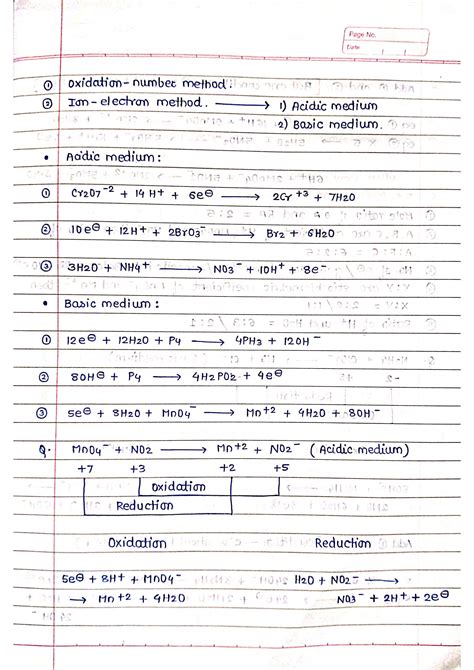 Page No.
Date
① Oxidation-number method.
② Ion-electron method. ⟶ 1) Acidic medium
2) Basic medium.
• Acidic medium:
① Cr2O7⁻² + 14H⁺ + 6e⊖ ⟶ 2Cr⁺³ + 7H2O
② 10e⊖ + 12H⁺ + 2BrO3⁻ ⟶ Br2 + 6H2O
③ 3H2O + NH4⁺ ⟶ NO3⁻ + 10H⁺ + 8e⁻
• Basic medium:
① 12e⊖ + 12H2O + P4 ⟶ 4PH3 + 12OH⁻
② 8OH⊖ + P4 ⟶ 4H2PO2 + 4e⊖
③ 5e⊖ + 8H2O + MnO4⁻ ⟶ Mn⁺² + 4H2O + 8OH⁻
Q. MnO4⁻ + NO2 ⟶ Mn⁺² + NO2⁻ (Acidic medium)
+7 +3 +2 +5
Oxidation
Reduction
Oxidation Reduction
5e⊖ + 8H⁺ + MnO4⁻ H2O + NO2⁻ ⟶
⟶ Mn⁺² + 4H2O NO3⁻ + 2H⁺ + 2e⊖